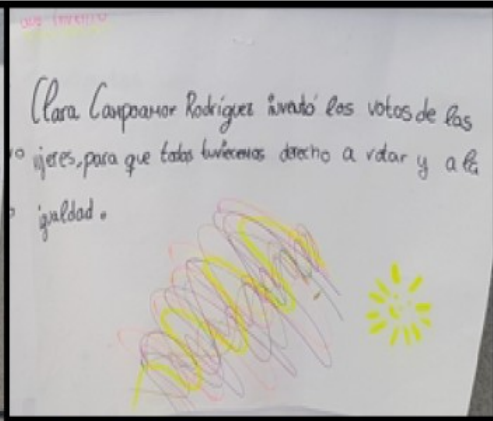 que inventó
Clara Campoamor Rodríguez inventó los votos de las
mujeres, para que todas tuviecemos derecho a votar y a la
igualdad.